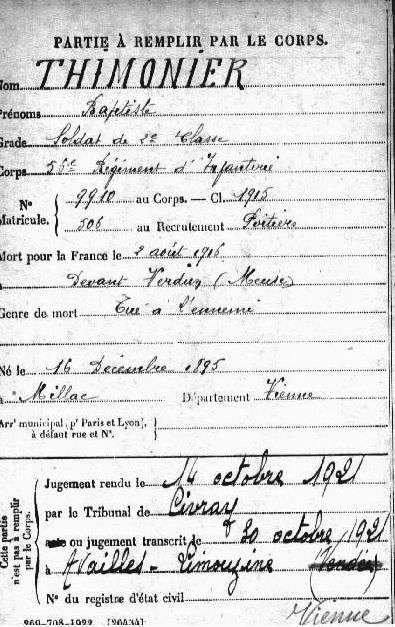 PARTIE À REMPLIR PAR LE CORPS.
Nom THIMONIER
Prénoms Baptiste
Grade Soldat de 2e Classe
Corps 56e Régiment d'Infanterie
N° 9910 au Corps. — Cl. 1915
Matricule. 506 au Recrutement Poitiers
Mort pour la France le 2 août 1916
à Devant Verdun (Meuse)
Genre de mort Tué à l'ennemi
Né le 16 Décembre 1895
à Millac Département Vienne
Arrt municipal, pr Paris et Lyon,
à défaut rue et N°.
Cette partie n'est pas à remplir par le Corps.
Jugement rendu le 14 octobre 1921
par le Tribunal de Civray
acte ou jugement transcrit le 20 octobre 1921
à Availles-Limouzine (Vendée)
N° du registre d'état civil
Vienne
269-708-1922. [26434]